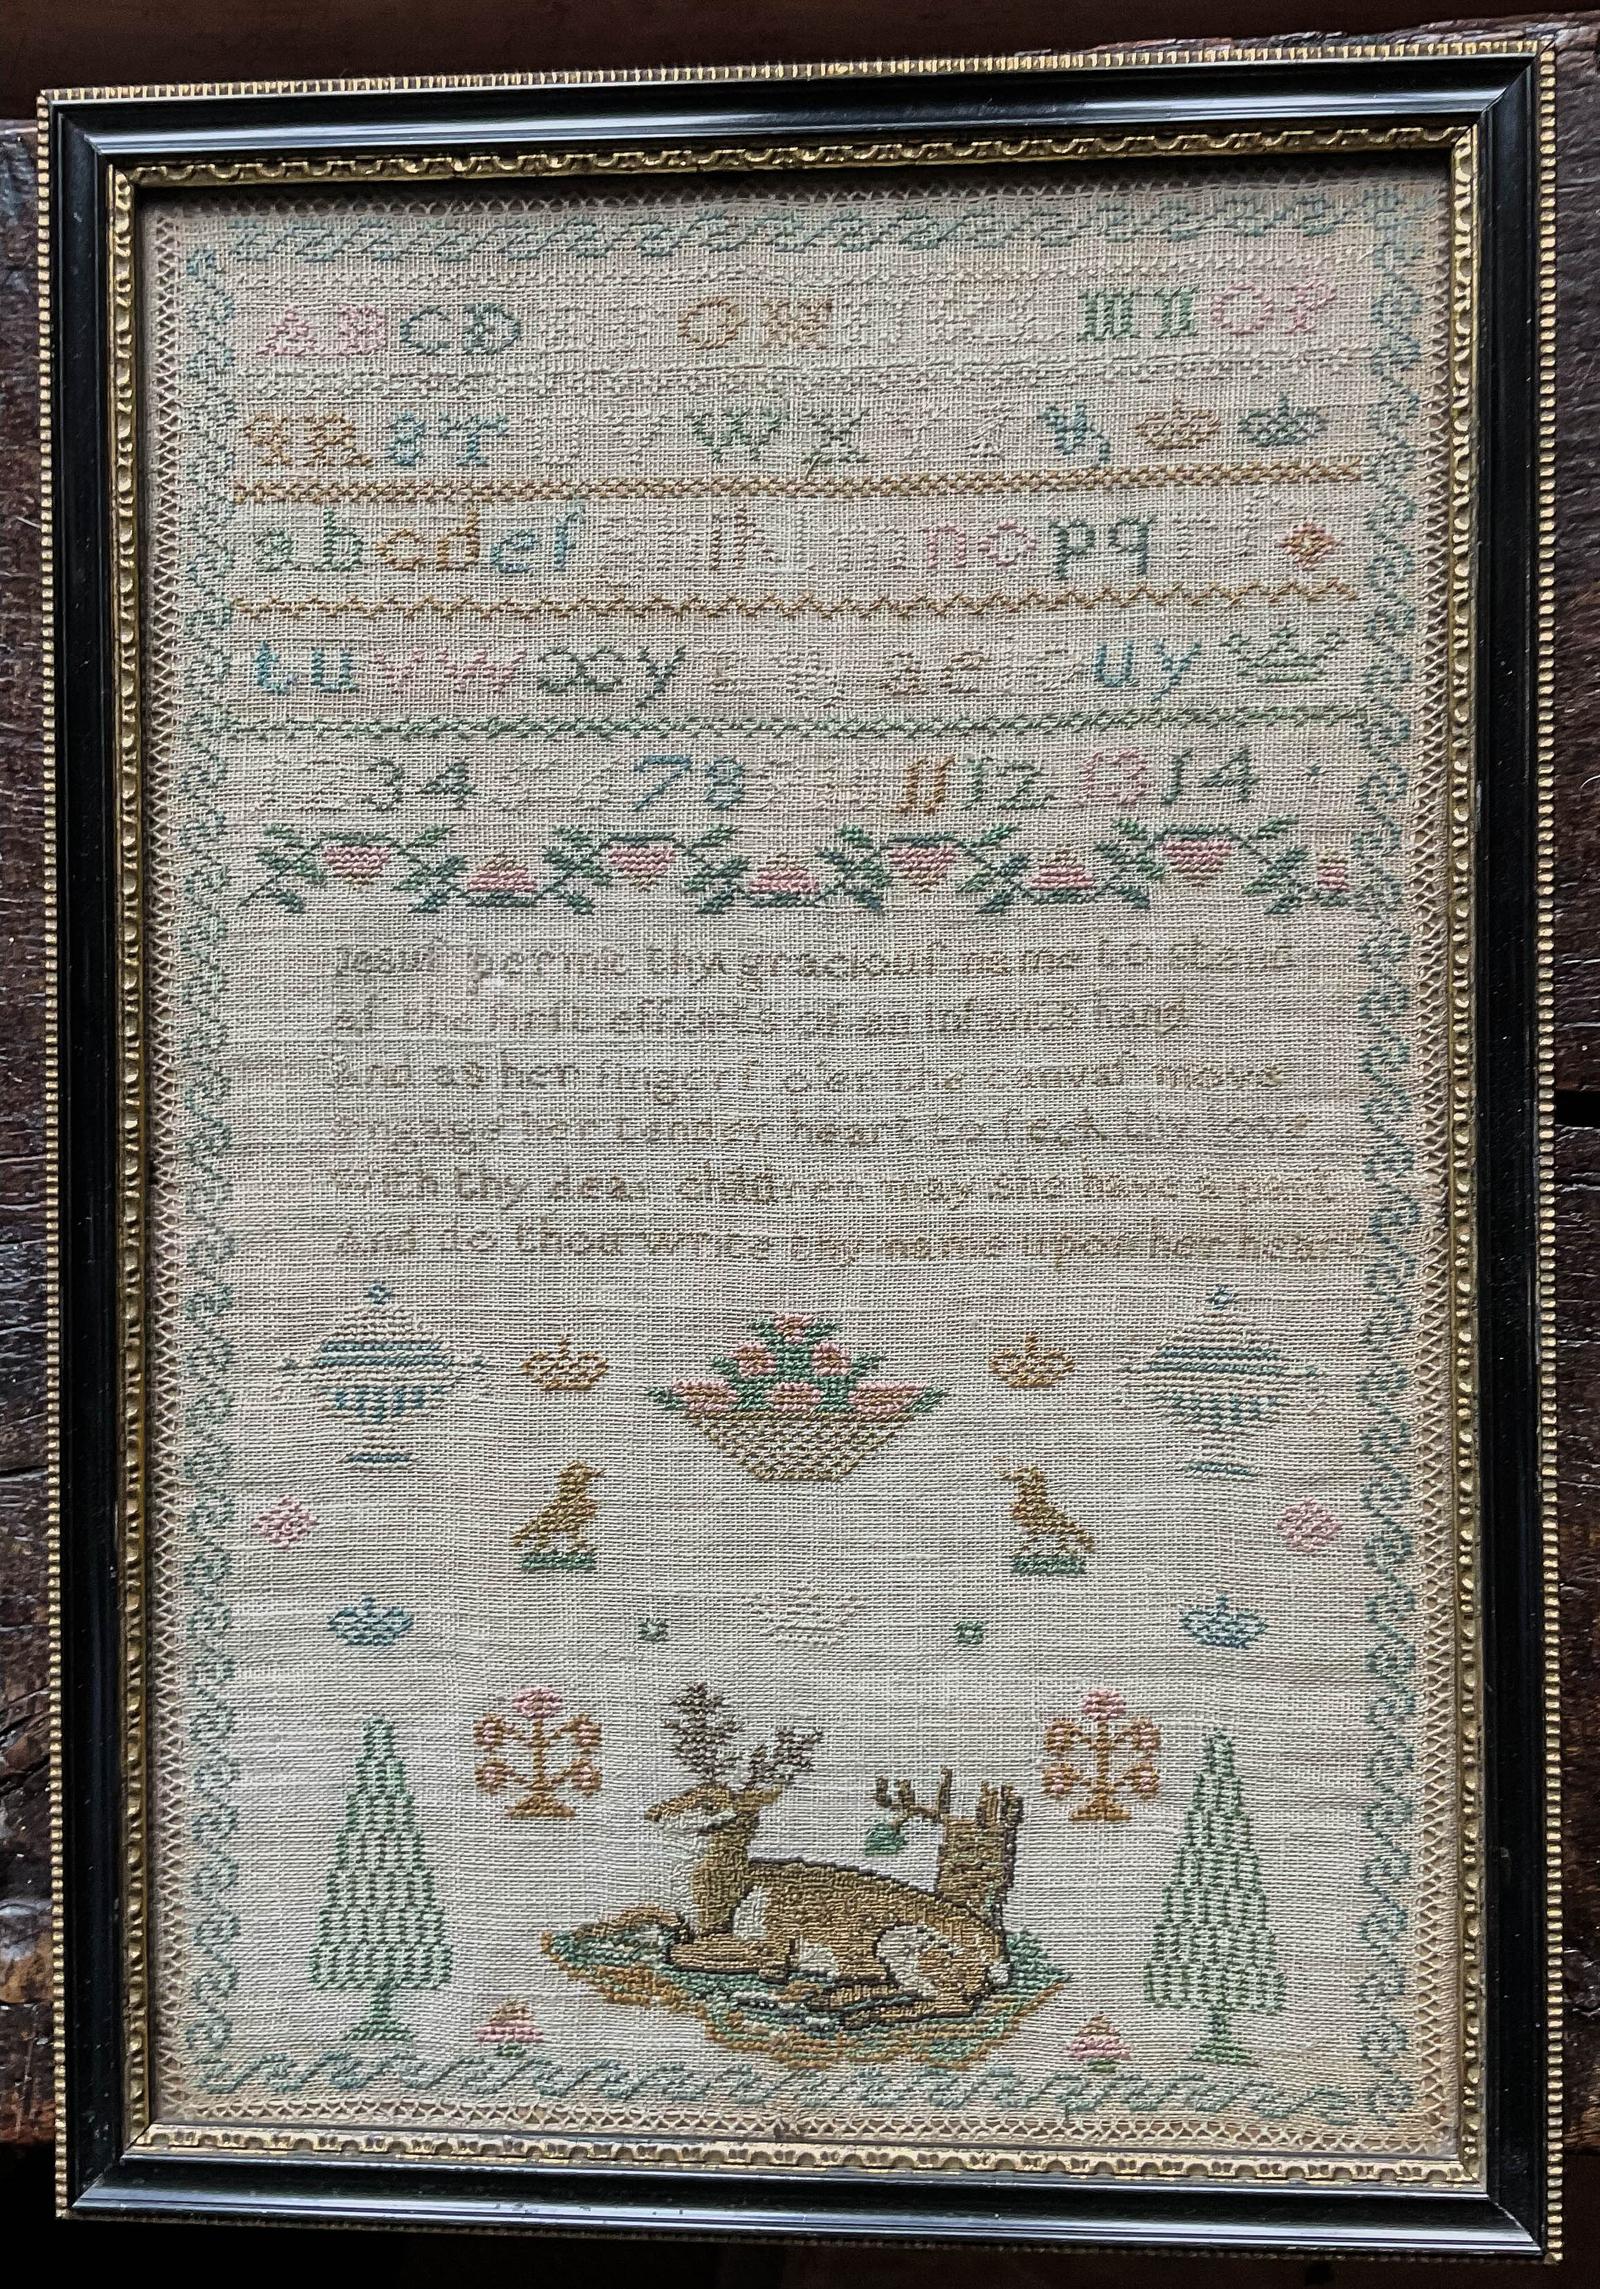 ABCD GH MNOP
QRST V WX Y &
abcdef ikl mnopq r
tuvwxy z & a e i o uy
34 78 11 12 13 14
Jesuſ permit thy graciouſ name to stand
aſ the firſt efforts of an infants hand
And as her fingerſ o'er the canvaſ move
engage her tender heart to ſeek thy love
With thy dear children may she have a part
And do thou write thy name upon her heart